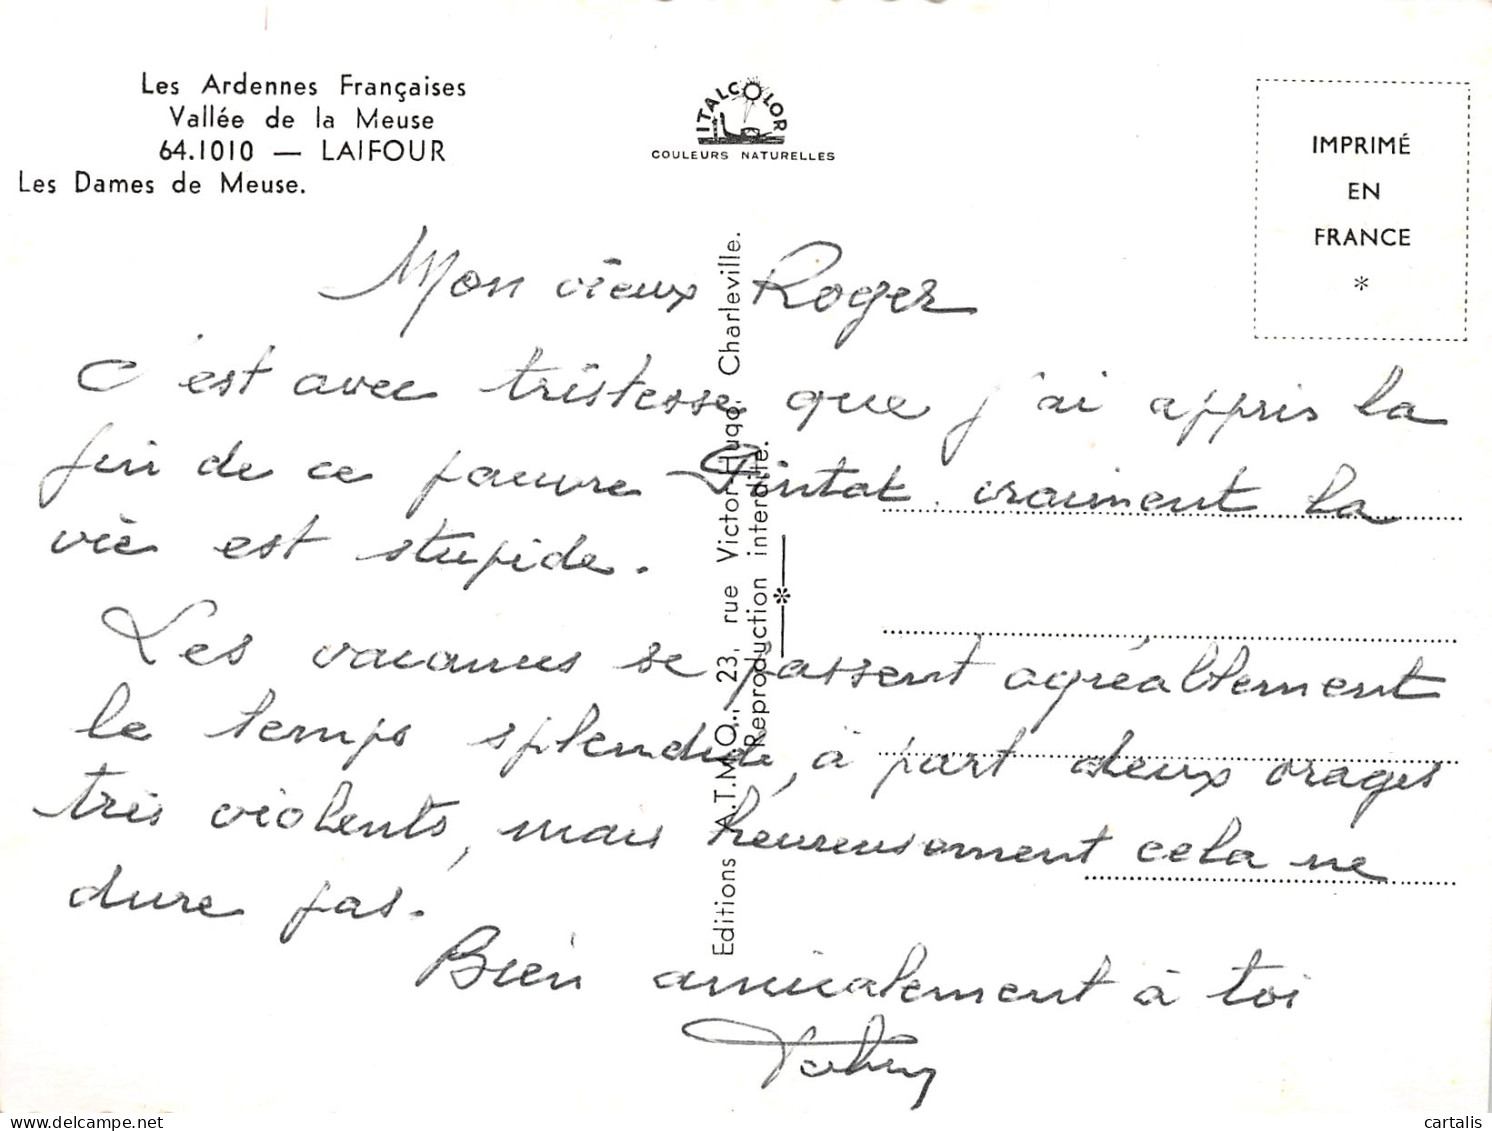 Les Ardennes Françaises
Vallée de la Meuse
64.1010 — LAIFOUR
Les Dames de Meuse.
ITALCOLOR
COULEURS NATURELLES
IMPRIMÉ
EN
FRANCE
*
Editions A.T.M.O., 23, rue Victor Hugo. Charleville.
Reproduction interdite.
Mon vieux Roger
C'est avec tristesse que j'ai appris la
fin de ce pauvre vraiment la
vie est stupide.
Les vacances se passent agréablement
le temps splendide, à part deux orages
très violents, mais heureusement cela ne
dure pas.
Bien amicalement à toi
cartalis